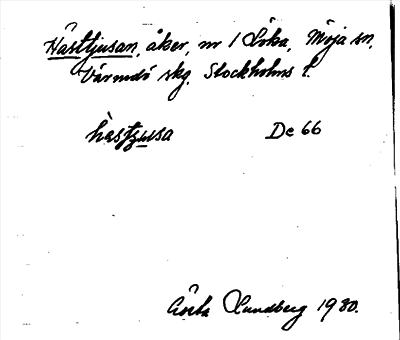 Hästtjusan, åker, nr 1 Löka, Möja sn,
Värmdö skg. Stockholms l.
hästʒusa De 66
Gösta Lundberg 1980.